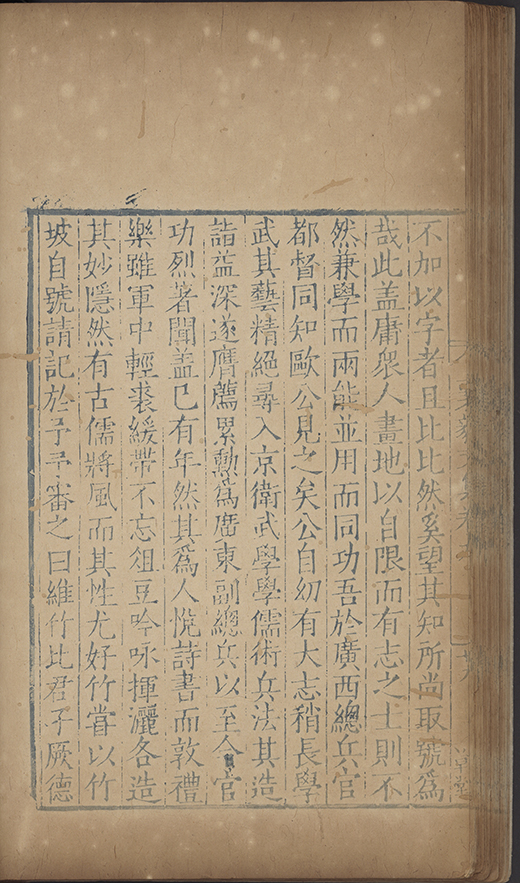 不加以字者且比比然奚望其知所尚取號爲
哉此盖庸衆人畫地以自限而有志之士則不
然兼學而兩能並用而同功吾於廣西總兵官
都督同知歐公見之矣公自幼有大志稍長學
武其藝精絕尋入京衛武學學儒術兵法其造
詣益深遂膺薦累勳爲廣東副總兵以至今官
功烈著聞盖已有年然其爲人悅詩書而敦禮
樂雖軍中輕裘緩帶不忘俎豆吟咏揮灑各造
其妙隱然有古儒將風而其性尤好竹嘗以竹
坡自號請記於予予審之曰維竹比君子厥德